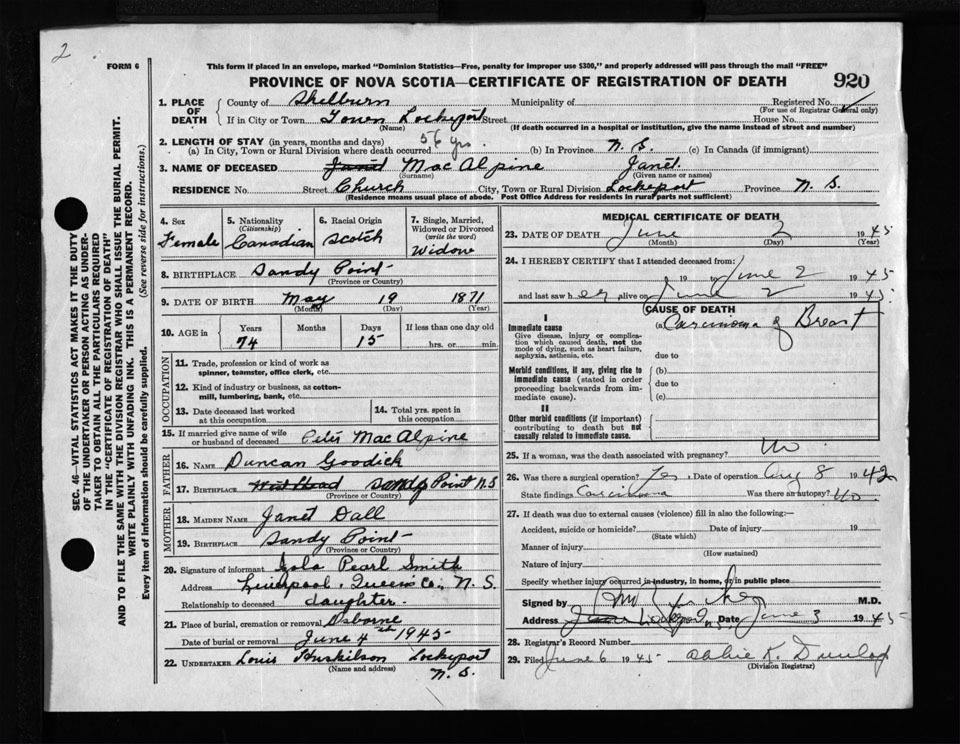 2
FORM 6
This form if placed in an envelope, marked "Dominion Statistics—Free, penalty for improper use $300," and properly addressed will pass through the mail "FREE"
PROVINCE OF NOVA SCOTIA—CERTIFICATE OF REGISTRATION OF DEATH
920
SEC. 46—VITAL STATISTICS ACT MAKES IT THE DUTY
OF THE UNDERTAKER OR PERSON ACTING AS UNDER-
TAKER TO OBTAIN ALL THE PARTICULARS REQUIRED
IN THE "CERTIFICATE OF REGISTRATION OF DEATH"
AND TO FILE THE SAME WITH THE DIVISION REGISTRAR WHO SHALL ISSUE THE BURIAL PERMIT.
WRITE PLAINLY WITH UNFADING INK. THIS IS A PERMANENT RECORD.
Every item of information should be carefully supplied. (See reverse side for instructions.)
1. PLACE OF DEATH
County of Shelburn Municipality of Registered No.
(For use of Registrar General only)
If in City or Town Town Lockeport Street House No.
(Name) (If death occurred in a hospital or institution, give the name instead of street and number)
2. LENGTH OF STAY (in years, months and days)
(a) In City, Town or Rural Division where death occurred 56 yrs. (b) In Province N. S. (c) In Canada (if immigrant)
3. NAME OF DECEASED Janet MacAlpine Janet.
(Surname) (Given name or names)
RESIDENCE No. Street Church City, Town or Rural Division Lockeport Province N. S.
(Residence means usual place of abode. Post Office Address for residents in rural parts not sufficient)
4. Sex
Female
5. Nationality
(Citizenship)
Canadian
6. Racial Origin
Scotch
7. Single, Married,
Widowed or Divorced
(write the word)
Widow
8. BIRTHPLACE Sandy Point
(Province or Country)
9. DATE OF BIRTH May 19 1871
(Month) (Day) (Year)
10. AGE in
Years Months Days If less than one day old
74 15 hrs. or min.
OCCUPATION
11. Trade, profession or kind of work as
spinner, teamster, office clerk, etc.
12. Kind of industry or business, as cotton-
mill, lumbering, bank, etc.
13. Date deceased last worked
at this occupation
14. Total yrs. spent in
this occupation
15. If married give name of wife
or husband of deceased Peter MacAlpine
FATHER
16. NAME Duncan Goodick
17. BIRTHPLACE West Head Sandy Point N.S
(Province or Country)
MOTHER
18. MAIDEN NAME Janet Dall
19. BIRTHPLACE Sandy Point
(Province or Country)
20. Signature of informant Pearl Smith
Address Liverpool. Queens Co. N. S.
Relationship to deceased daughter.
21. Place of burial, cremation or removal Osborne
Date of burial or removal June 4 1945
22. UNDERTAKER Louis Huskilson Lockeport
(Name and address) N. S.
MEDICAL CERTIFICATE OF DEATH
23. DATE OF DEATH June 2 1945
(Month) (Day) (Year)
24. I HEREBY CERTIFY that I attended deceased from:
19 to June 2 1945
and last saw her alive on June 2 1945
CAUSE OF DEATH
I
Immediate cause
Give disease, injury or complica-
tion which caused death, not the
mode of dying, such as heart failure,
asphyxia, asthenia, etc.
(a) Carcinoma of Breast
due to
Morbid conditions, if any, giving rise to
immediate cause (stated in order
proceeding backwards from im-
mediate cause).
(b)
due to
(c)
II
Other morbid conditions (if important)
contributing to death but not
causally related to immediate cause.
25. If a woman, was the death associated with pregnancy? No
26. Was there a surgical operation? Yes Date of operation Aug 8 1942
State findings Carcinoma Was there an autopsy? No
27. If death was due to external causes (violence) fill in also the following:—
Accident, suicide or homicide? Date of injury 19
(State which)
Manner of injury
(How sustained)
Nature of injury
Specify whether injury occurred in industry, in home, or in public place
Signed by M.D.
Address Lockeport N.S. Date June 3 1945
28. Registrar's Record Number
29. Filed June 6 1945 Abbie K. Dunlop
(Division Registrar)